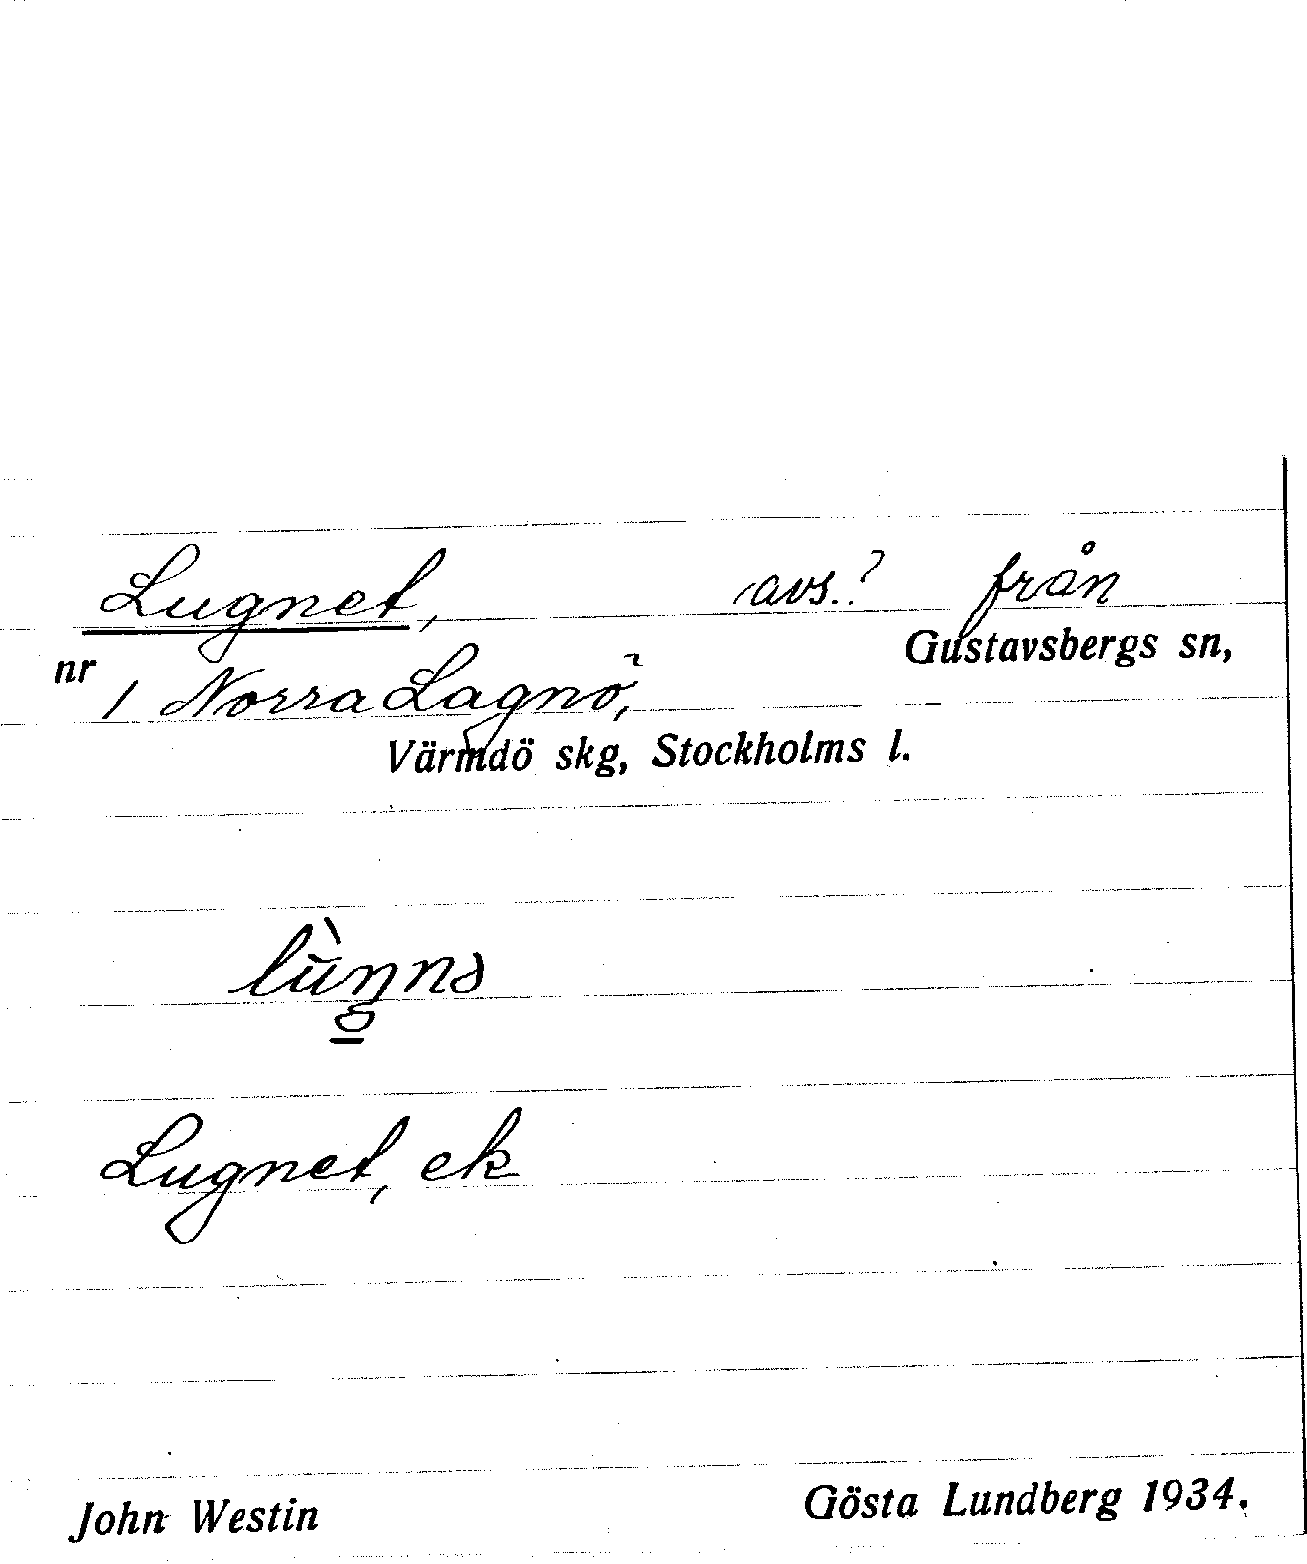 Lugnet, avs.? från
Gustavsbergs sn,
nr 1 Norra Lagnö,
Värmdö skg, Stockholms l.
lùŋnə
Lugnet, ek
John Westin Gösta Lundberg 1934.